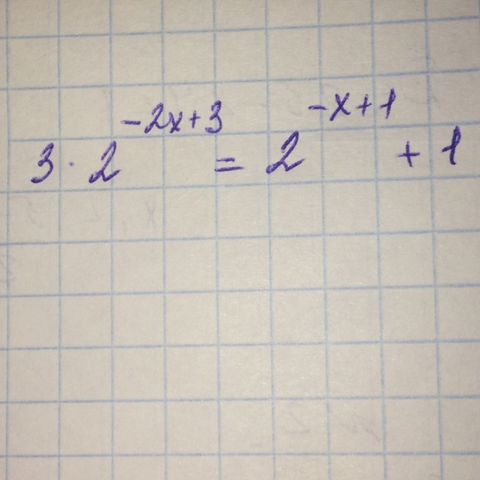 3 · 2^{-2x+3} = 2^{-x+1} + 1